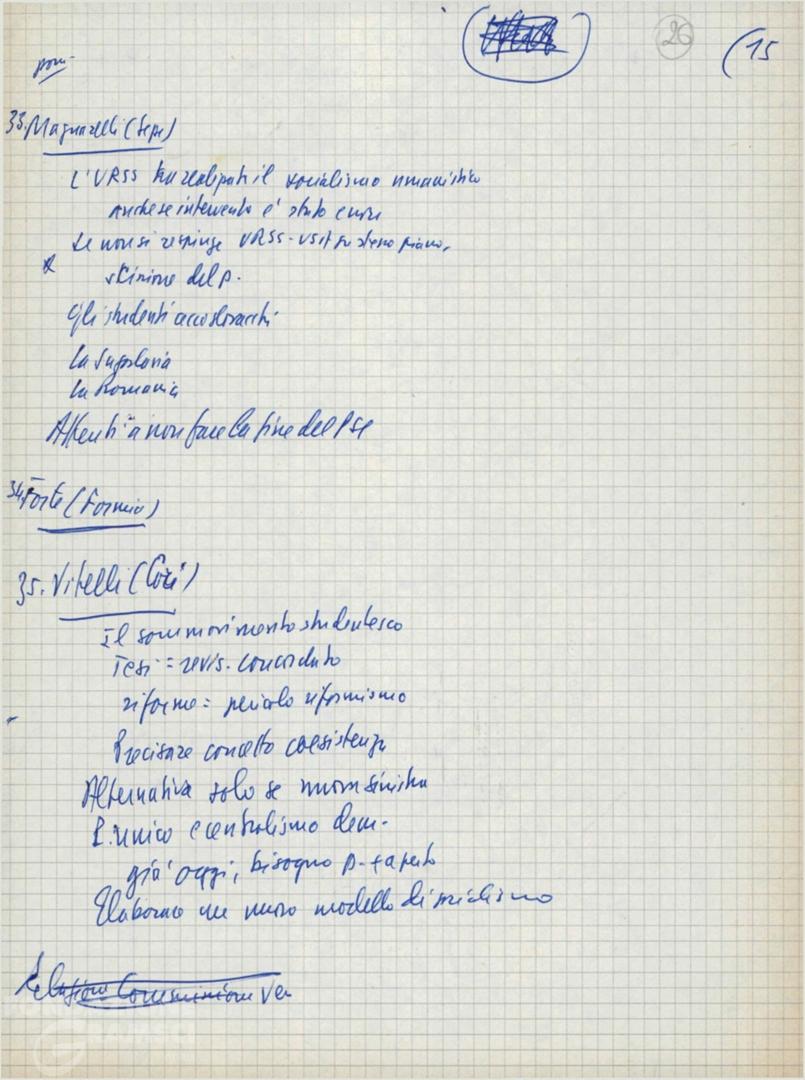 26
(15
pom-
33. Magnarelli (Sepe)
L'URSS ha realizzato il socialismo umanistico
anche se intervento è stato errore
Se non si respinge URSS-USA su stesso piano,
scissione del p.
Gli studenti cecoslovacchi
La Jugoslavia
La Romania
Attenti a non fare la fine del PSE
34. Forte (Formia)
35. Vitelli (Cori)
Il sommovimento studentesco
Tesi = revis. concordato
riforme = pericolo riformismo
Precisare concetto coesistenza
Alternativa solo se nuova sinistra
P. unico e centralismo dem-
già oggi, bisogno p. + aperto
Elaborare un nuovo modello di socialismo
Relazione Commissione Ver